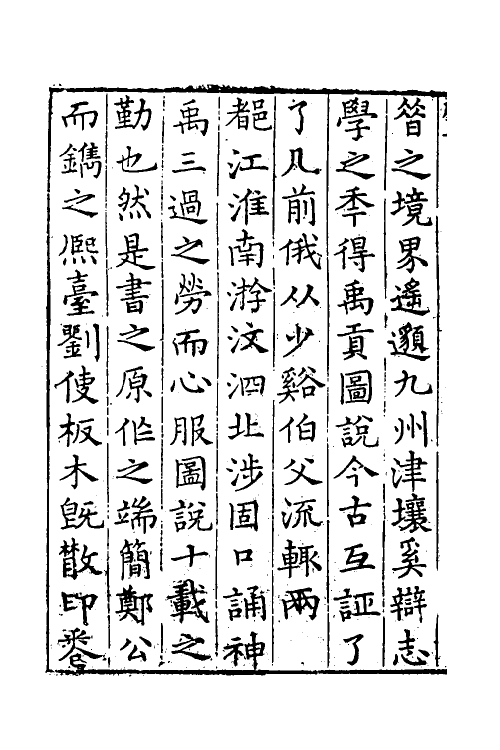 晉之境界遙邈九州津壤奚辯志
學之季得禹貢圖說今古互証了
了几前俄从少谿伯父流輙兩
都江淮南游汶泗北涉固口誦神
禹三過之勞而心服圖說十載之
勤也然是書之原作之端簡鄭公
而鐫之熙臺劉使板木既散印